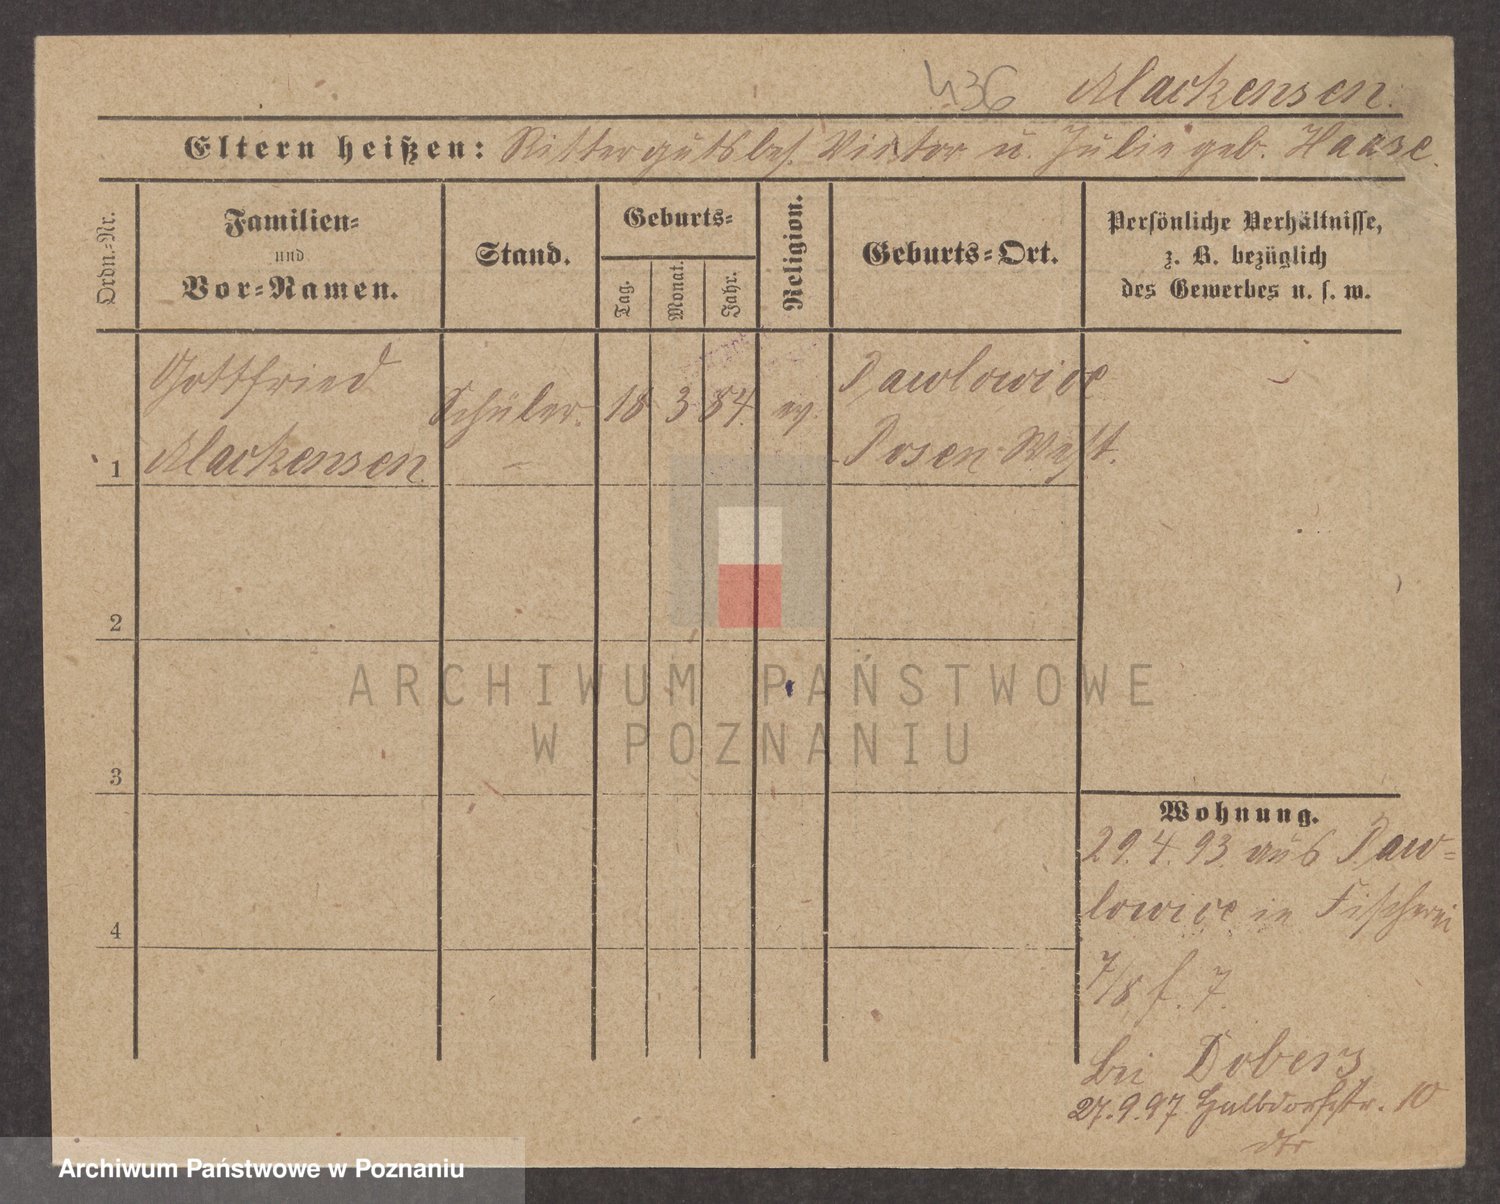 436 Mackensen.
Eltern heißen: Rittergutsbes. Victor u. Julie geb. Haase.
Ordn.-Nr.
Familien-
und
Vor-Namen.
Stand.
Geburts-
Tag.
Monat.
Jahr.
Religion.
Geburts-Ort.
Persönliche Verhältnisse,
z. B. bezüglich
des Gewerbes u. s. w.
1
Gottfried
Mackensen.
Schüler.
18 3 84.
ev.
Pawlowice
Posen-West.
2
3
4
ARCHIWUM PAŃSTWOWE
W POZNANIU
Wohnung.
29.4.93 aus Paw-
lowice in Fischerei
7/8 f. 7.
bei Dobers
27.9.97 Halbdorfstr. 10
dto
Archiwum Państwowe w Poznaniu